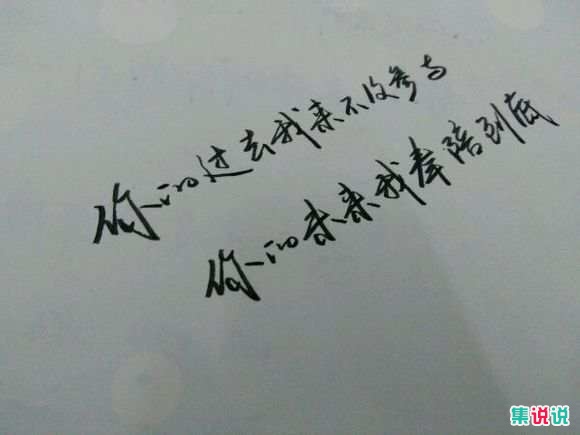 你的过去我来不及参与
你的未来我奉陪到底
集说说